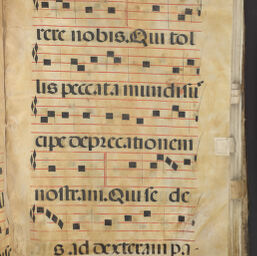 rere nobis. Qui tol
lis peccata mundi su
cipe deprecationem
nostram. Qui se de
s ad dexteram pa-